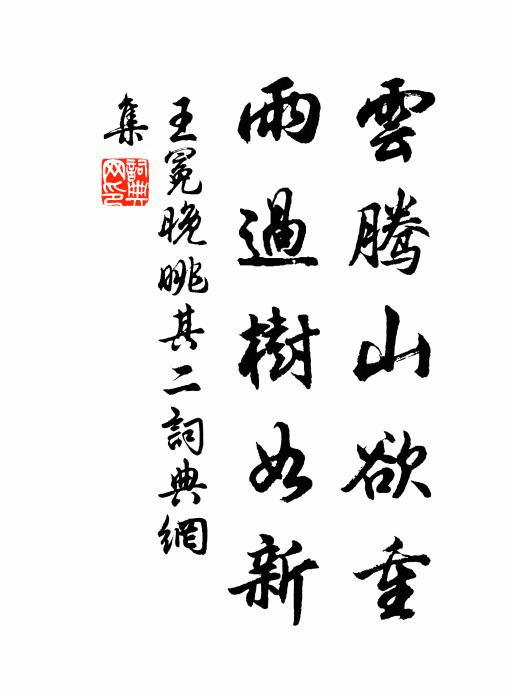 雲騰山欲重
雨過樹如新
王冕晚眺其二詞典網
集
詞典
网印